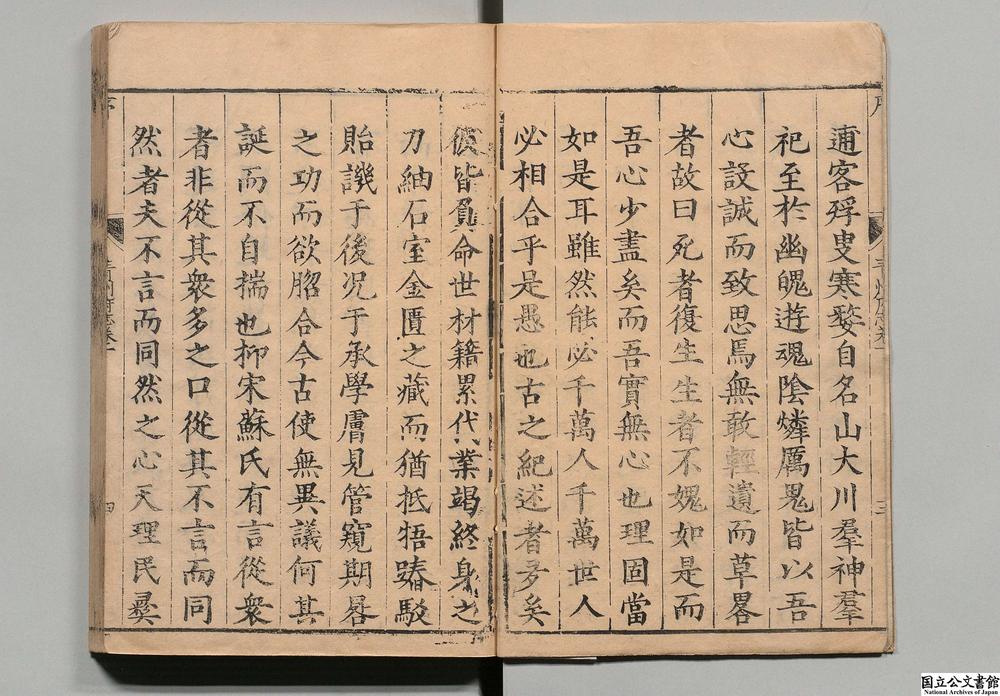 逋客殍叟寒婺自名山大川羣神羣
祀至於幽魄遊魂陰燐厲鬼皆以吾
心設誠而致思焉無敢輕遺而草畧
者故曰死者復生生者不媿如是而
吾心少盡矣而吾實無心也理固當
如是耳雖然能必千萬人千萬世人
必相合乎是愚也古之紀述者多矣
彼皆負命世材籍累代業竭終身之
力紬石室金匱之藏而猶抵牾踳駁
貽譏于後況于承學膚見管窺期晷
之功而欲脗合今古使無異議何其
誕而不自揣也抑宋蘇氏有言從衆
者非從其衆多之口從其不言而同
然者夫不言而同然之心天理民彝
序
三
四
国立公文書館
National Archives of Japan